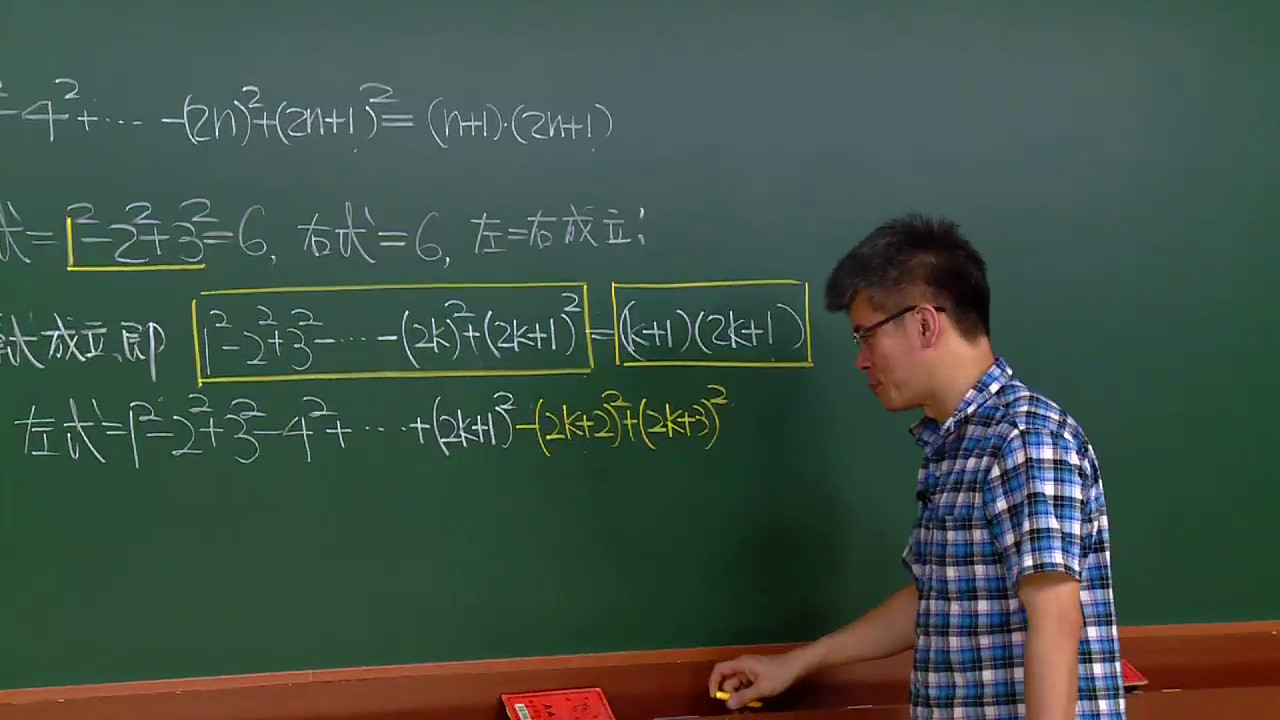 -4²+⋯-(2n)²+(2n+1)²=(n+1)·(2n+1)
式=1²-2²+3²=6, 右式=6, 左=右成立;
成立,即 1²-2²+3²-⋯-(2k)²+(2k+1)²=(k+1)(2k+1)
左式=1²-2²+3²-4²+⋯+(2k+1)²-(2k+2)²+(2k+3)²
AA